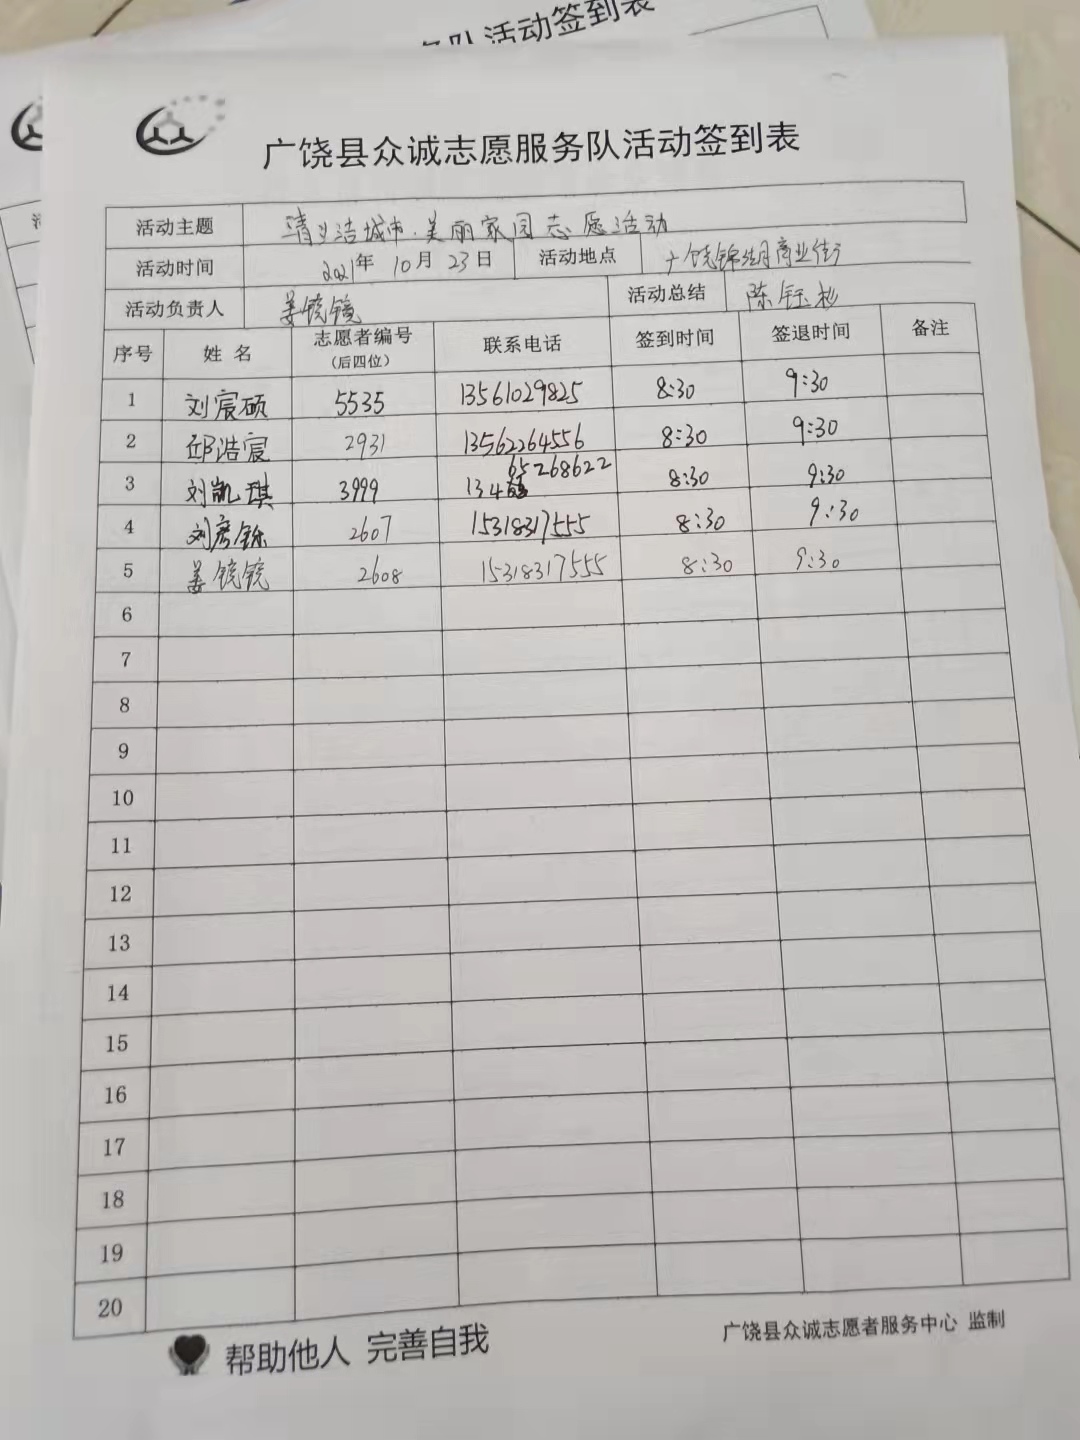 队活动签到表
广饶县众诚志愿服务队活动签到表
活动主题 清义洁城市·美丽家园志愿活动
活动时间 2021年 10月 23日 活动地点 广饶锦湖商业街
活动负责人 姜镜镜 活动总结 陈钰杉
序号 姓 名 志愿者编号(后四位) 联系电话 签到时间 签退时间 备注
1 刘宸硕 5535 13561029825 8:30 9:30
2 邱浩宸 2931 13562264556 8:30 9:30
3 刘凯琪 3999 13465268622 8:30 9:30
4 刘彦铄 2607 15318317555 8:30 9:30
5 姜镜镜 2608 15318317555 8:30 9:30
6
7
8
9
10
11
12
13
14
15
16
17
18
19
20
帮助他人 完善自我
广饶县众诚志愿者服务中心 监制